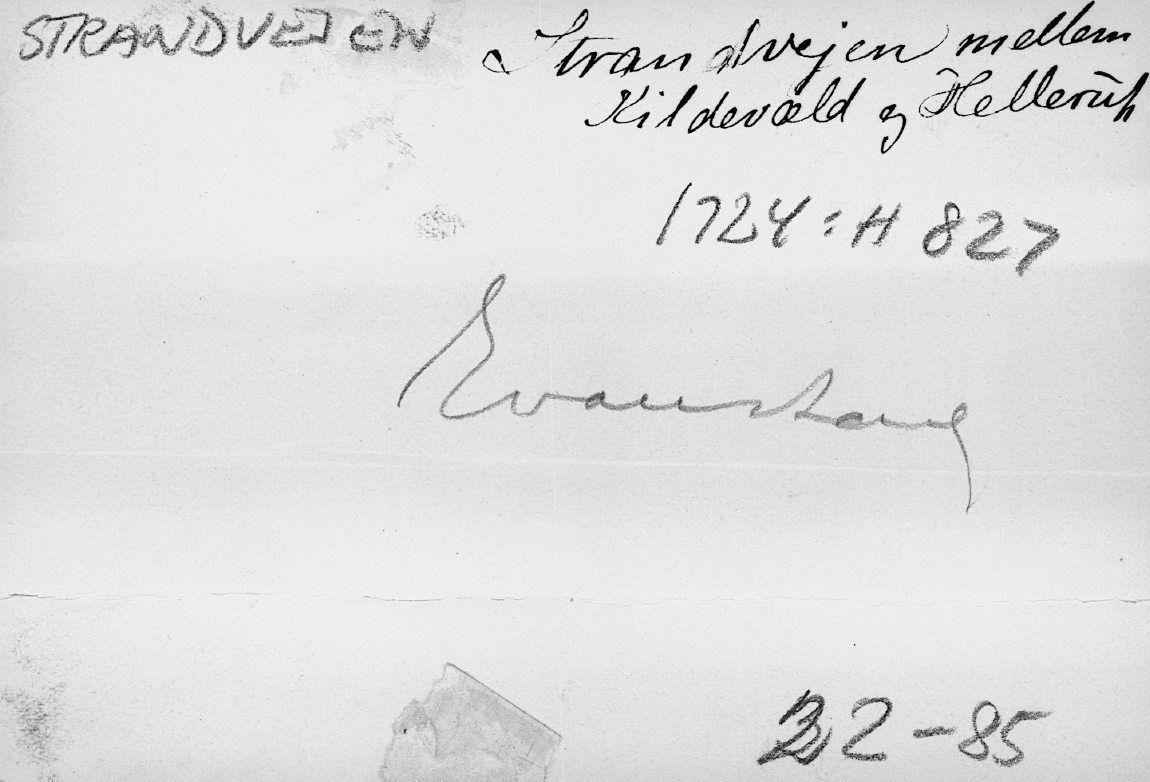 STRANDVEJEN
Strandvejen mellem
Kildevæld og Hellerup
1724:H 827
22-85